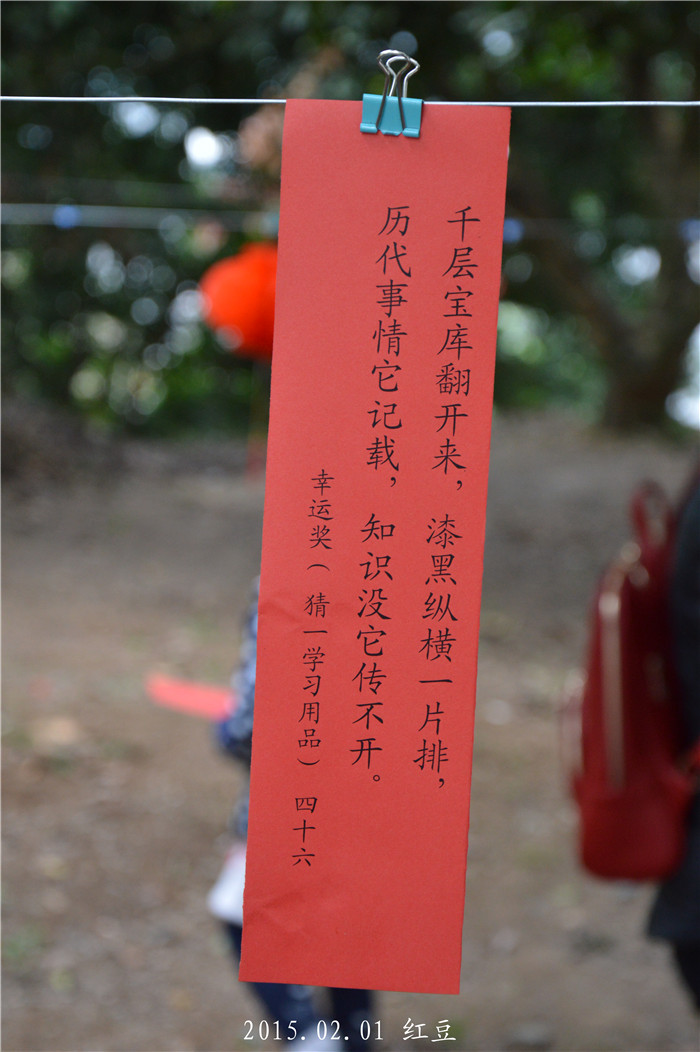 千层宝库翻开来，漆黑纵横一片排，
历代事情它记载，知识没它传不开。
幸运奖（猜一学习用品）四十六
2015.02.01 红豆